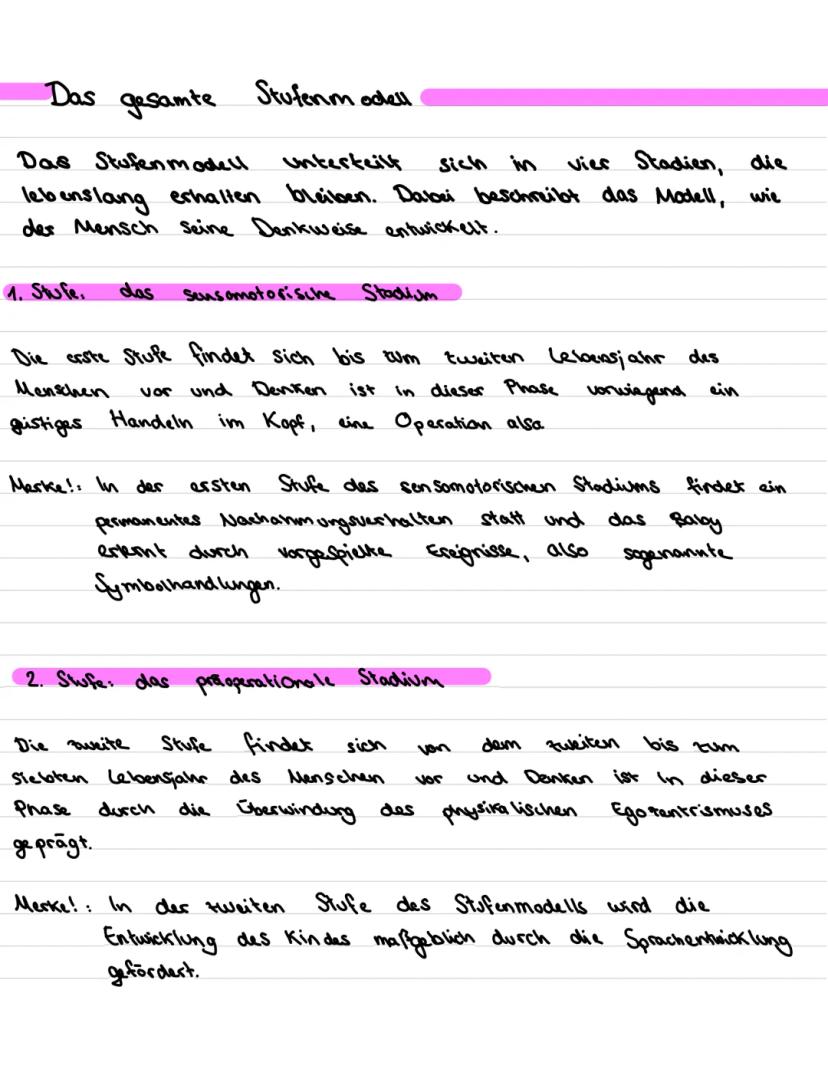 Das gesamte Stufenmodell
Das Stufenmodell unterteilt sich in vier Stadien, die
lebenslang erhalten bleiben. Dabei beschreibt das Modell, wie
der Mensch seine Denkweise entwickelt.
1. Stufe: das sensomotorische Stadium
Die erste Stufe findet sich bis zum zweiten Lebensjahr des
Menschen vor und Denken ist in dieser Phase vorwiegend ein
geistiges Handeln im Kopf, eine Operation also
Merke!: In der ersten Stufe des sensomotorischen Stadiums findet ein
permanentes Nachahmungsverhalten statt und das Baby
erkennt durch vorgespielte Ereignisse, also sogenannte
Symbolhandlungen.
2. Stufe: das präoperationale Stadium
Die zweite Stufe findet sich von dem zweiten bis zum
siebten Lebensjahr des Menschen vor und Denken ist in dieser
Phase durch die Überwindung des physikalischen Egozentrismuses
geprägt.
Merke!: In der zweiten Stufe des Stufenmodells wird die
Entwicklung des Kindes maßgeblich durch die Sprachentwicklung
gefördert.